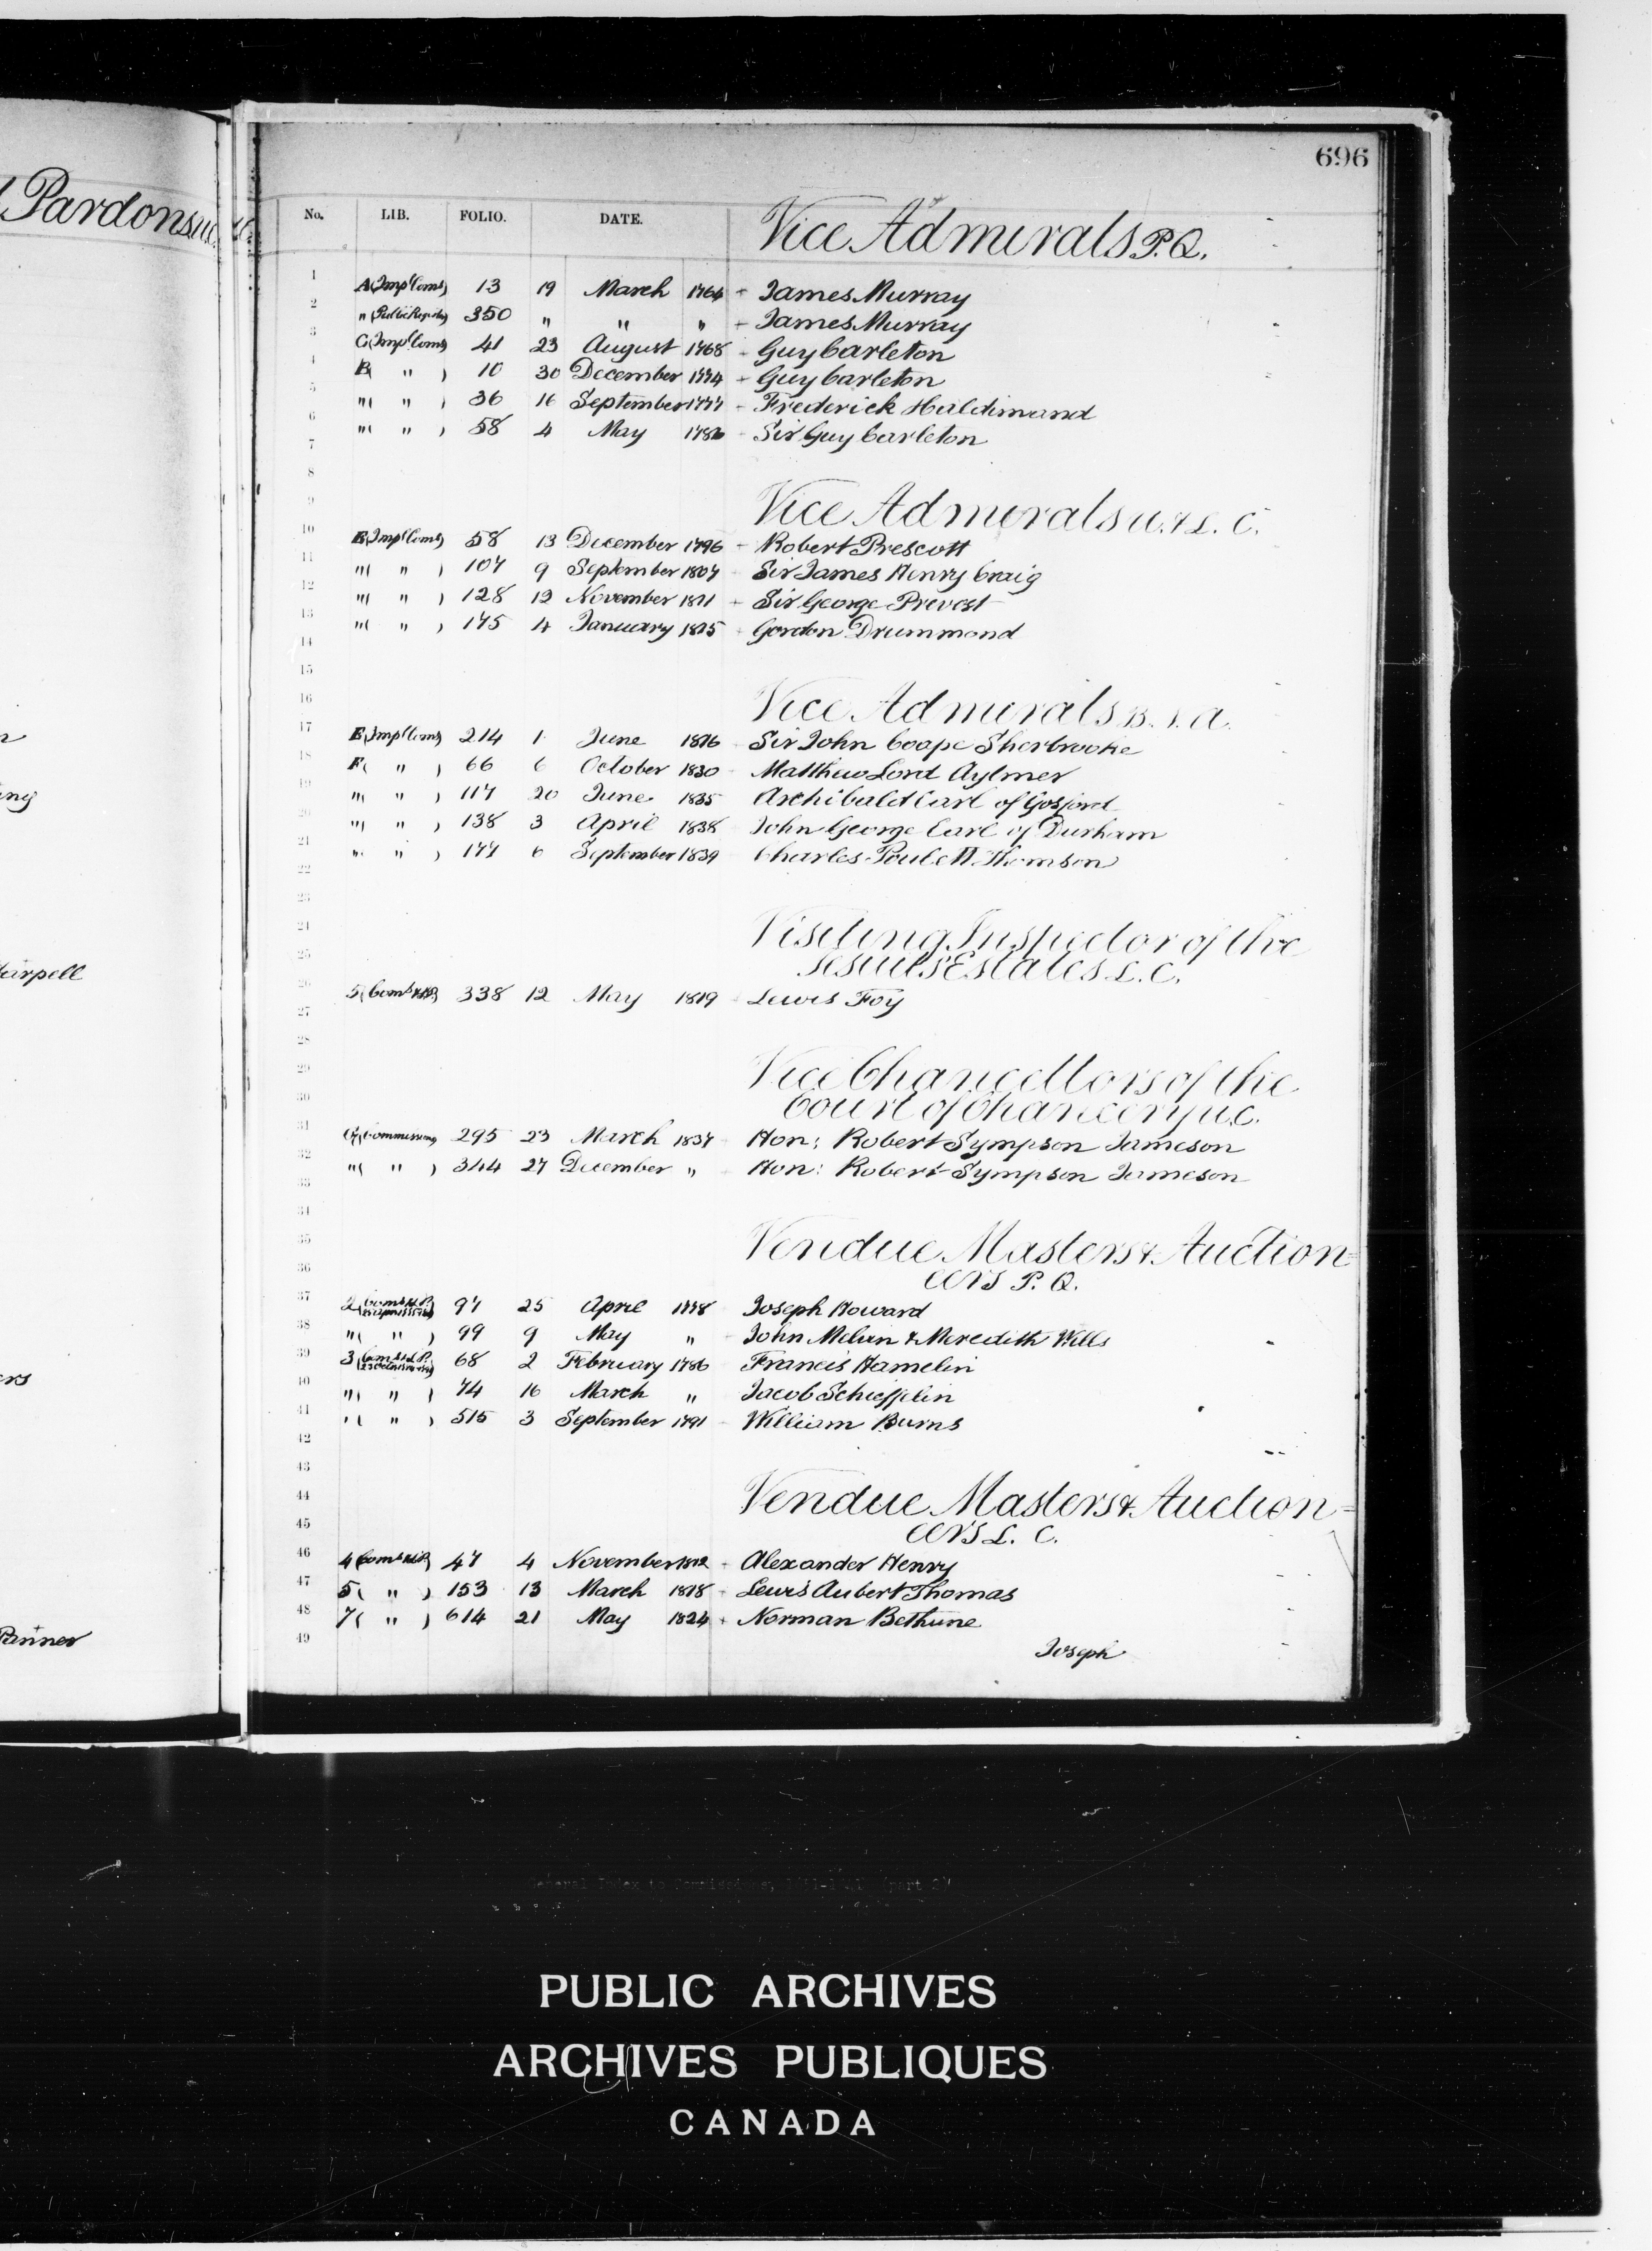 Pardons
696
No. LIB. FOLIO. DATE. Vice Admirals P.Q.
1
A (Impl Coms) 13 19 March 1764 - James Murray
2
" (Public Register) 350 " " " - James Murray
3
C (Impl Coms) 41 23 August 1768 - Guy Carleton
4
B ( " ) 10 30 December 1774 - Guy Carleton
5
" ( " ) 36 16 September 1777 - Frederick Haldimand
6
" ( " ) 58 4 May 1786 - Sir Guy Carleton
7
8
9
Vice Admirals U. & L. C.
10
B (Impl Coms) 58 13 December 1796 - Robert Prescott
11
" ( " ) 107 9 September 1807 - Sir James Henry Craig
12
" ( " ) 128 12 November 1811 - Sir George Prevost
13
" ( " ) 175 4 January 1815 - Gordon Drummond
14
15
16
Vice Admirals B. N. A.
17
E (Impl Coms) 214 1 June 1816 - Sir John Coape Sherbrooke
18
F ( " ) 66 6 October 1830 - Matthew Lord Aylmer
19
" ( " ) 117 20 June 1835 Archibald Earl of Gosford
20
" ( " ) 138 3 April 1838 - John George Earl of Durham
21
" ( " ) 177 6 September 1839 Charles Poulett Thomson
22
23
24
Visiting Inspector of the
25
Jesuits Estates L. C.
26
5 (Coms & L.P.) 338 12 May 1819 - Lewis Foy
27
28
29
Vice Chancellors of the
30
Court of Chancery U.C.
31
(Commissions) 295 23 March 1837 - Hon: Robert Sympson Jameson
32
" ( " ) 344 27 December " - Hon: Robert Sympson Jameson
33
34
35
Vendue Masters & Auction=
36
eers P. Q.
37
2 (Coms & L.P.) 97 25 April 1778 - Joseph Howard
38
" ( " ) 99 9 May " - John Melvin & Meredith Wills
39
3 (Coms & L.P.) 68 2 February 1786 - Francis Hamelin
40
" ( " ) 74 16 March " Jacob Schieffelin
41
" ( " ) 515 3 September 1791 - William Burns
42
43
44
Vendue Masters & Auction=
45
eers L. C.
46
4 (Coms & L.P.) 47 4 November 1812 - Alexander Henry
47
5 ( " ) 153 13 March 1818 - Lewis Aubert Thomas
48
7 ( " ) 614 21 May 1824 - Norman Bethune
49
Joseph
General Index to Commissions, (part 2)
PUBLIC ARCHIVES
ARCHIVES PUBLIQUES
CANADA